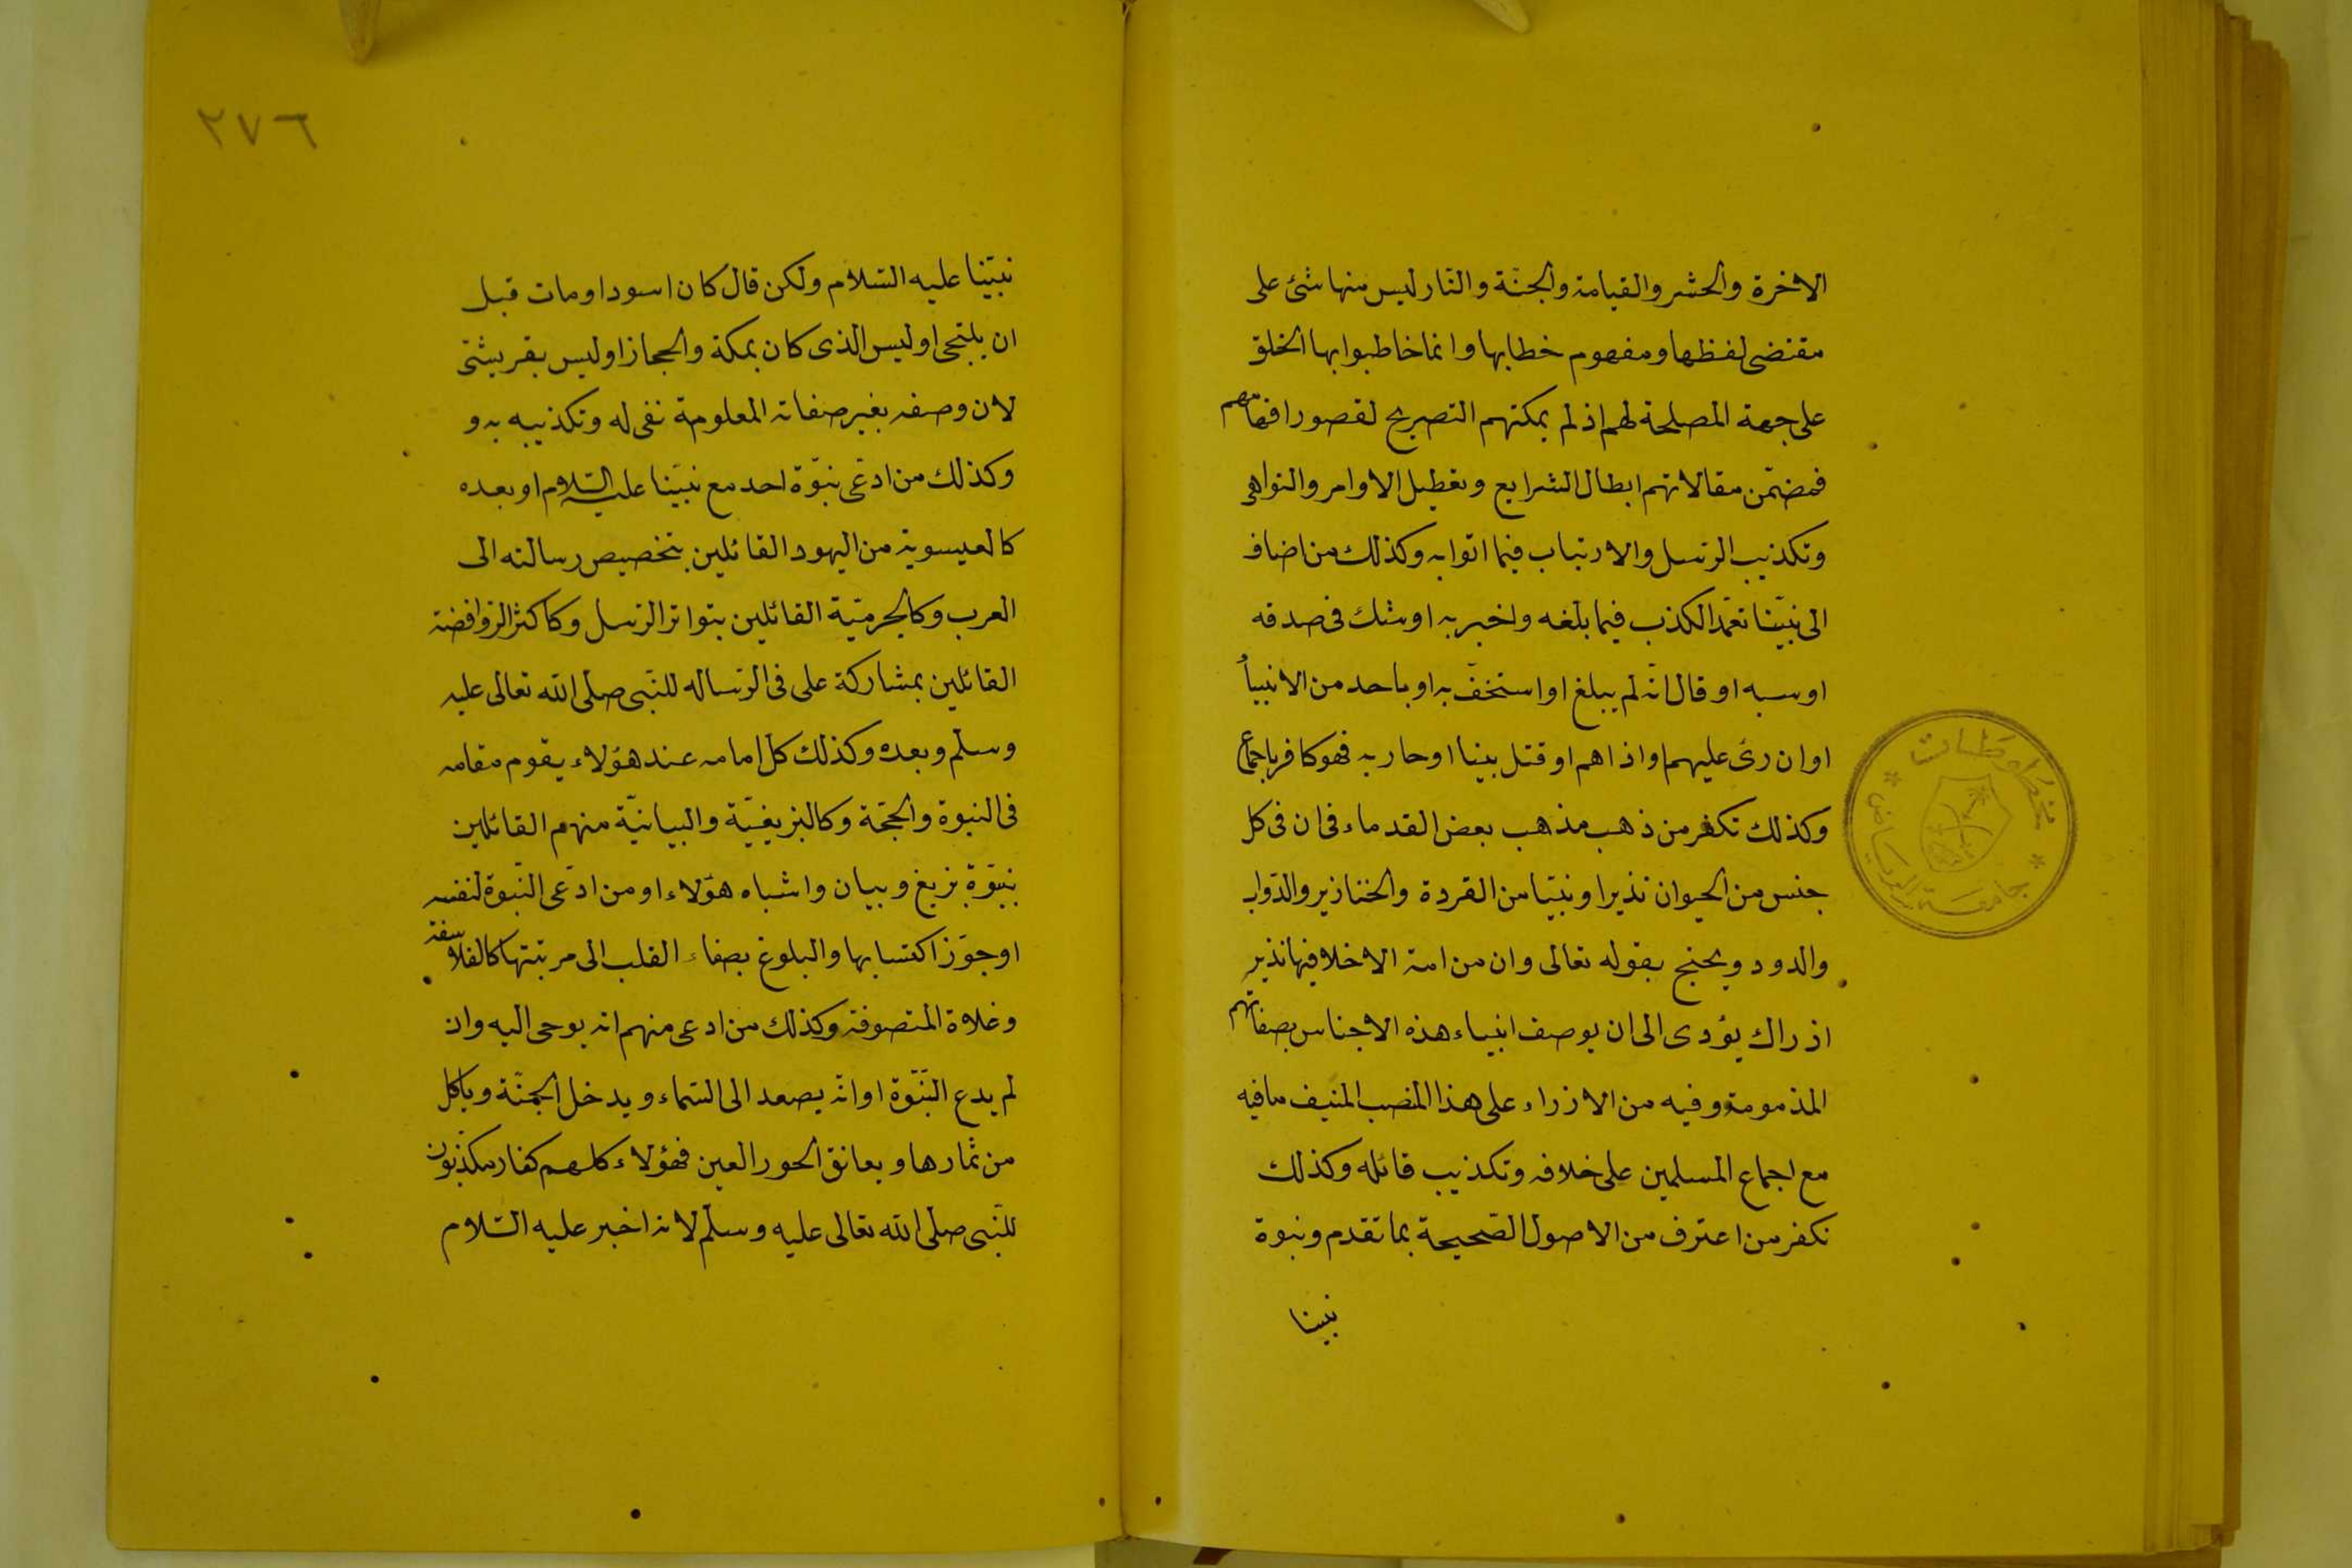 الاخرة والحشر والقيامة والجنّة والنّار ليس منها شئ على
مقتضى لفظها ومفهوم خطابها وانما خاطبوا بها الخلق
على جهة المصلحة لهم اذ لم يمكنهم التصريح لقصور افهامهم
فمضمّن مقالاتهم ابطال الشرايع وتعطيل الاوامر والنواهى
وتكذيب الرّسل والارتياب فيما اتوا به وكذلك من اضاف
الى نبيّنا تعمّد الكذب فيما بلّغه واخبر به او شك فى صدقه
او سبه او قال انّه لم يبلغ او استخفّ به او باحد من الانبياء
او ان رئ عليهم او اذاهم او قتل بينا او حاربه فهو كافر باجماع
وكذلك نكفر من ذهب مذهب بعض القدماء فى ان فى كل
جنس من الحيوان نذيرا ونبيّا من القردة والخنازير والدّواب
والدود ويحتج بقوله تعالى وان من امة الا خلا فيها نذير
اذ راك يؤدى الى ان يوصف انبياء هذه الاجناس بصفاتهم
المذمومة وفيه من الازراء على هذا المنصب المنيف ما فيه
مع اجماع المسلمين على خلافه وتكذيب قائله وكذلك
نكفر من اعترف من الاصول الصّحيحة بما تقدم ونبوة
نبينا
مخطوطات
جامعة الرياض
٢٧٦
نبيّنا عليه السّلام ولكن قال كان اسود او مات قبل
ان يلتحى او ليس الذى كان بمكة والحجاز او ليس بقريشىّ
لان وصفه بغير صفاته المعلومة نفى له وتكذيبه به و
وكذلك من ادعّى نبوّة احد مع نبيّنا عليه السّلام او بعده
كالعيسوية من اليهود القائلين بتخصيص رسالته الى
العرب وكالجرميّة القائلين بتواتر الرّسل وكاكثر الرّوافضة
القائلين بمشاركة على فى الرّسالة للنّبى صلى الله تعالى عليه
وسلّم وبعده وكذلك كلّ امامه عند هؤلاء يقوم مقامه
فى النبوة والحجّة وكالبزيغيّة والبيانيّة منهم القائلين
بنبوّة بزيغ وبيان واشباه هؤلاء او من ادّعى النّبوة لنفسه
او جوّز اكتسابها والبلوغ بصفاء القلب الى مرتبتها كالفلاسفة
وغلاة المتصوفة وكذلك من ادعى منهم انه يوحى اليه وان
لم يدع النّبوّة او انّه يصعد الى السّماء ويدخل الجنّة وياكل
من ثمارها ويعانق الحور العين فهؤلاء كلهم كفار مكذّبون
للنّبى صلّى الله تعالى عليه وسلّم لانه اخبر عليه السّلام